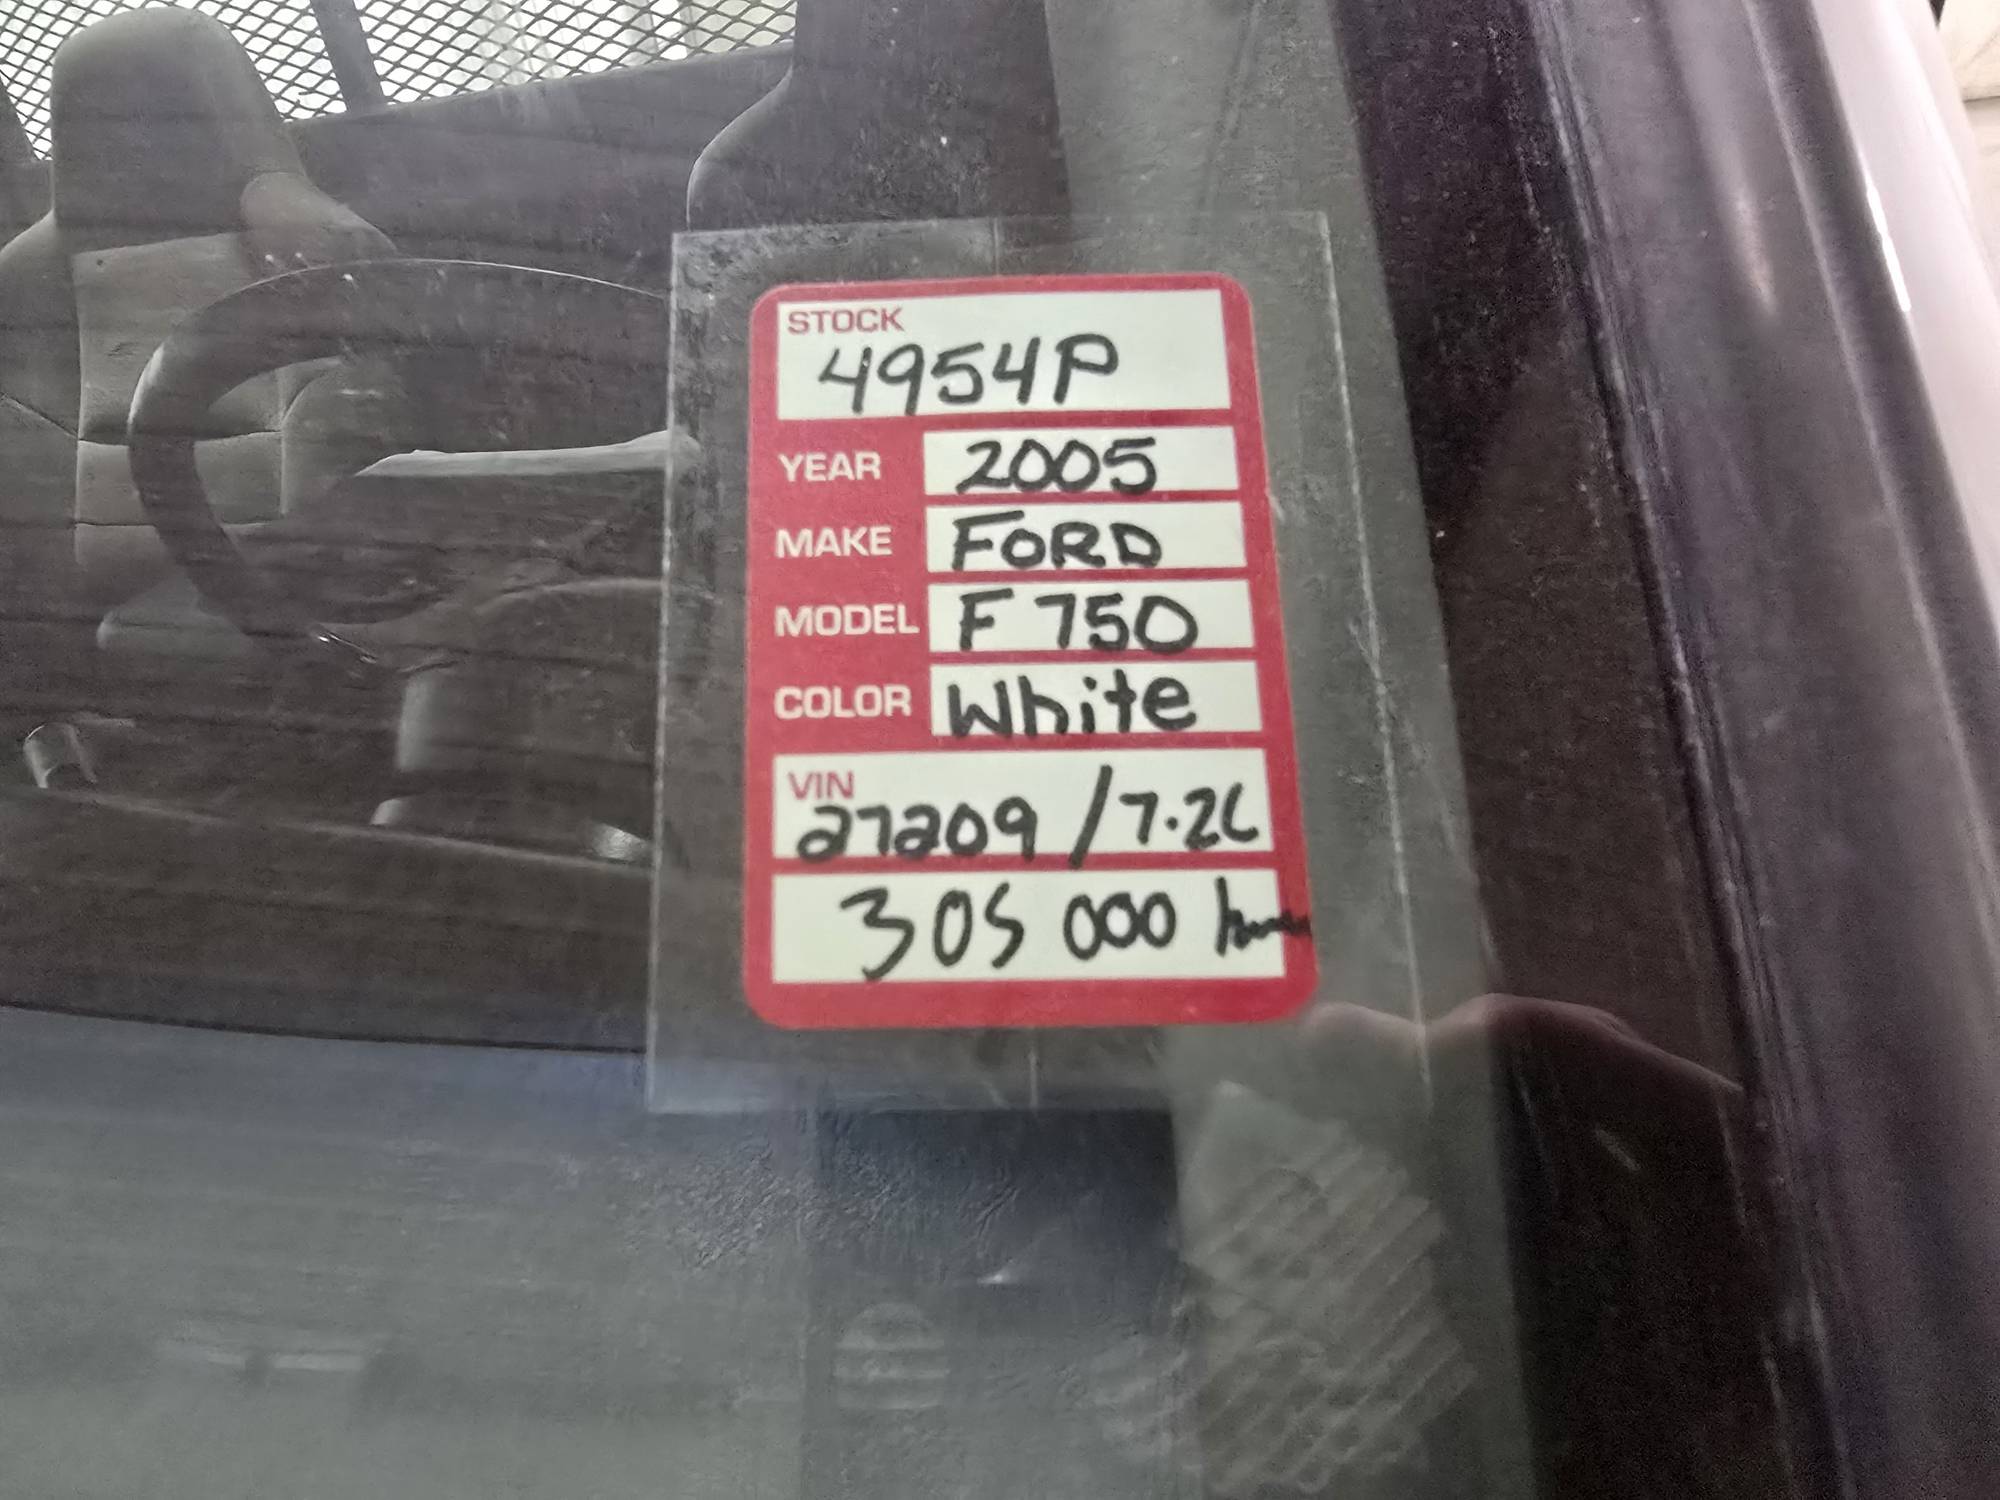 STOCK
4954P
YEAR 2005
MAKE FORD
MODEL F 750
COLOR White
VIN
27209 / 7.2L
305 000 km